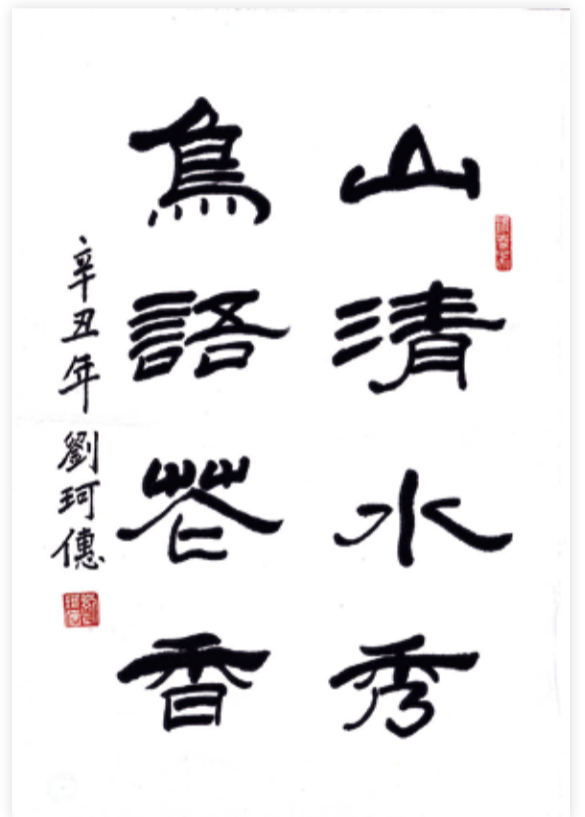 山清水秀
鳥語花香
辛丑年劉珂僡